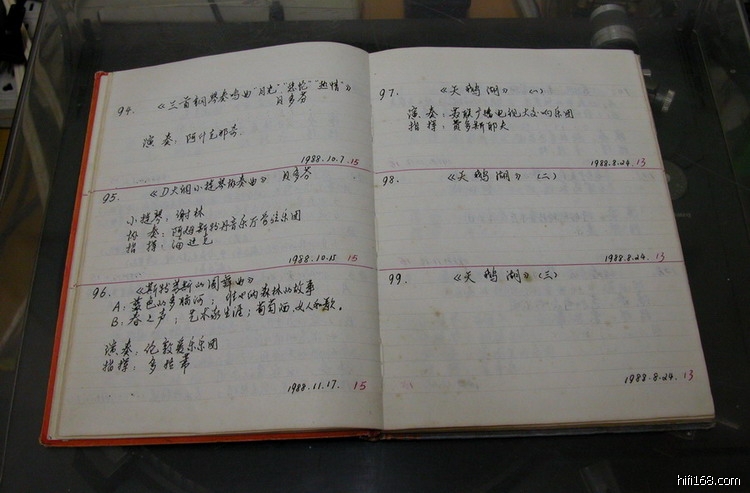 94. 《三首钢琴奏鸣曲"月光""悲怆""热情"》
贝多芬
演奏：阿什肯那齐
1988.10.7. 15
95. 《D大调小提琴协奏曲》 贝多芬
小提琴：谢林
协奏：阿姆斯特丹音乐厅管弦乐团
指挥：海廷克
1988.10.15 15
96. 《斯特劳斯的圆舞曲》
A：蓝色的多瑙河；维也纳森林的故事
B：春之声；艺术家生涯；葡萄酒、女人和歌。
演奏：伦敦爱乐乐团
指挥：多拉蒂
1988.11.17. 15
97. 《天鹅湖》（一）
演奏：苏联广播电视大交响乐团
指挥：费多斯耶夫
1988.8.24. 13
98. 《天鹅湖》（二）
1988.8.24. 13
99. 《天鹅湖》（三）
1988.8.24. 13
hifi168.com